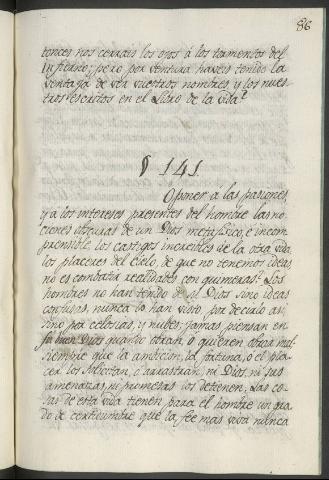 86
tonces nos cerrais los ojos á los tormentos del
Infierno; pero por ventura haveis tenido la
ventaja de ver vuestros nombres y los nues
tros escritos en el Libro de la vida?
§ 141.
Oponer á las pasiones,
y á los intereses presentes del hombre las no
ciones obscuras de un Dios metafisico, é incom
prensible los castigos increibles de la otra vida
los placeres del Cielo, de que no tenemos ideas
no es combatir realidades con quimeras? Los
hombres no han tenido de Dios sino ideas
confusas, nunca lo han visto, por decirlo asi,
sino por celosias, y nubes: jamas piensan en
quando obran, ó quieren obrar mal
siempre que la ambicion, la fortuna, ó el pla
cer los solicitan, ó arrastran, ni Dios, ni sus
amenazas, ni promesas los detienen. Las co
sas de esta vida tienen para el hombre un gra
do de certidumbre que la fee mas viva nunca